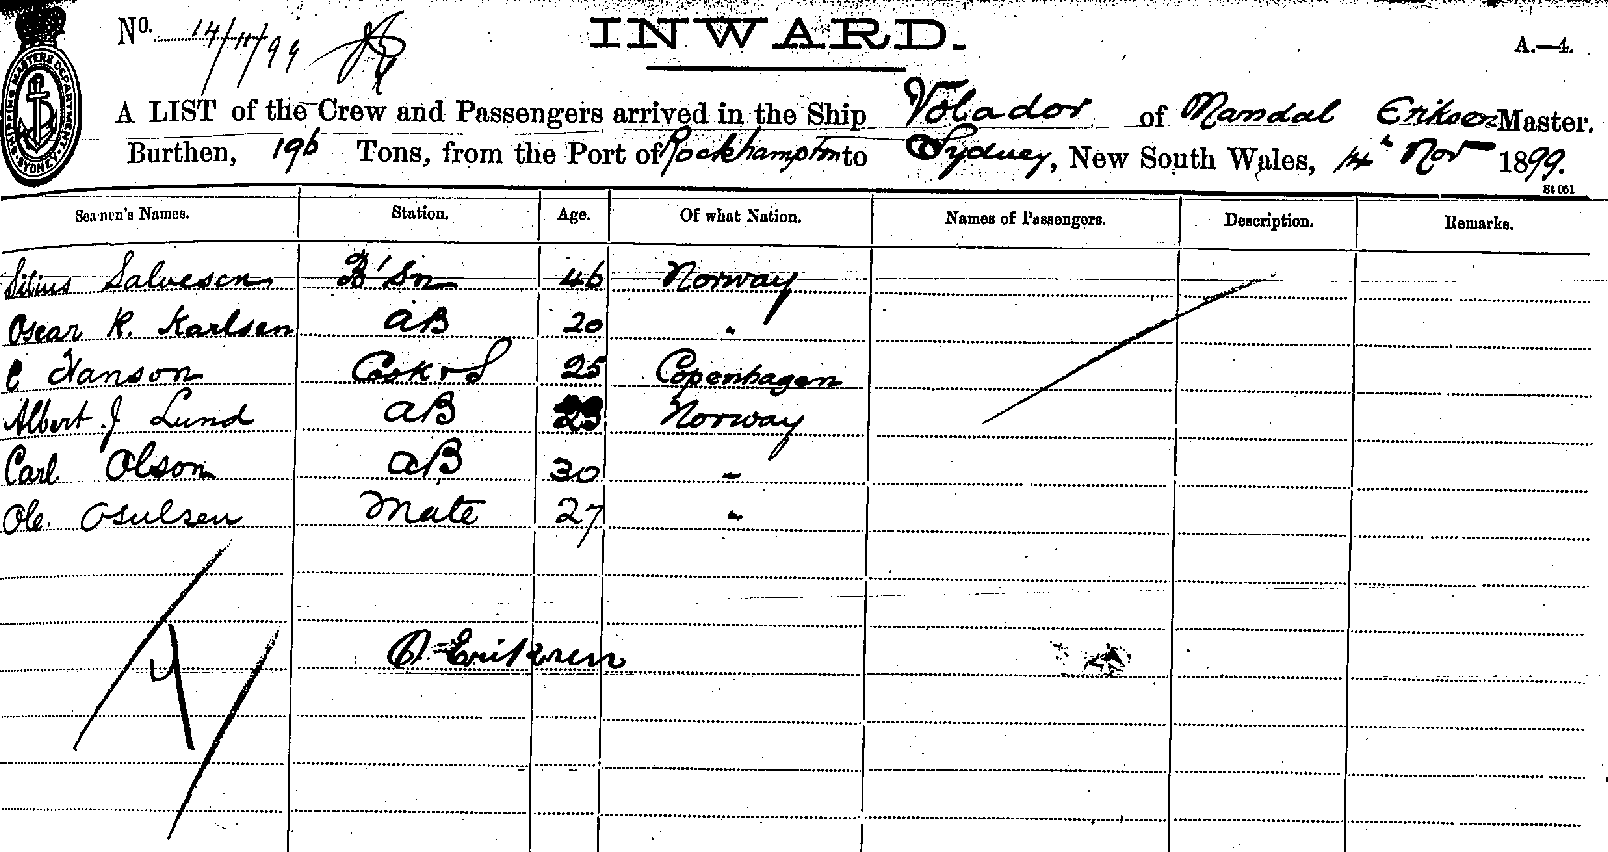 No. 14/11/99
INWARD.
A.—4.
A LIST of the Crew and Passengers arrived in the Ship Volador of Mandal Eriksen Master.
Burthen, 196 Tons, from the Port of Rockhampton to Sydney, New South Wales, 14th Nov 1899.
St 061
Seamen's Names. Station. Age. Of what Nation. Names of Passengers. Description. Remarks.
Salvesen B'Sn 46 Norway
Oscar R. Karlsen AB 20 "
C Hanson Cook & S 25 Copenhagen
Albert J Lund AB 23 Norway
Carl Olson AB 30 "
Ole Osulsen Mate 27 "
O. Eriksen